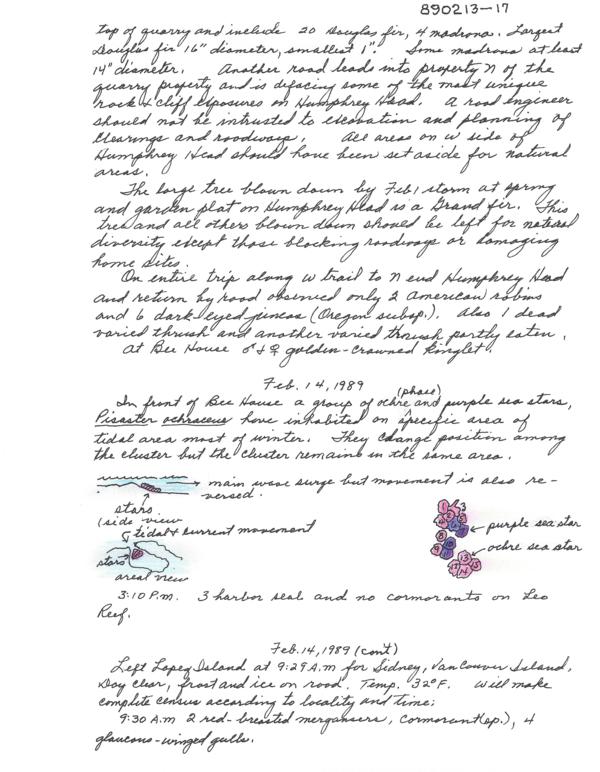 890213-17
top of quarry and include 20 Douglas fir, 4 madrona. Largest
Douglas fir 16" diameter, smallest 1". Some madrona at least
14" diameter. Another road leads into property N of the
quarry property and is defacing some of the most unique
rock & cliff exposures on Humphrey Head. A road engineer
should not be intrusted to excavation and planning of
clearings and roadways. All areas on W side of
Humphrey Head should have been set aside for natural
areas.
The large tree blown down by Feb 1 storm at spring
and garden plat on Humphrey Head is a Grand fir. This
tree and all others blown down should be left for natural
diversity except those blocking roadways or damaging
home sites.
On entire trip along W trail to N end Humphrey Head
and return by road observed only 2 American robins
and 6 dark-eyed juncos (Oregon subsp.). Also 1 dead
varied thrush and another varied thrush partly eaten.
At Bee House ♂ & ♀ golden-crowned kinglet.
Feb. 14, 1989
(phase)
In front of Bee House a group of ochre and purple sea stars,
Pisaster ochraceus have inhabited on specific area of
tidal area most of winter. They change position among
the cluster but the cluster remains in the same area.
main wave surge but movement is also re-
versed.
stars
(side view
tidal & current movement
stars
areal view
purple sea star
ochre sea star
3:10 P.M. 3 harbor seal and no cormorants on Leo
Reef.
Feb. 14, 1989 (cont)
Left Lopez Island at 9:29 A.M for Sidney, Vancouver Island,
Day clear, frost and ice on road. Temp. 32°F. Will make
complete census according to locality and time:
9:30 A.M 2 red-breasted mergansers, cormorant (sp.), 4
glaucous-winged gulls.